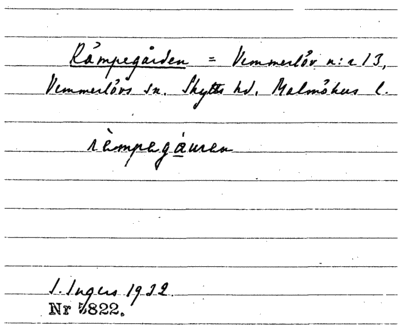 Råmpegården = Vemmerlöv n:r 13,
Vemmerlövs sn. Skytts hd. Malmöhus l.
råmpegåuren
I. Ingers 1932.
Nr 5822.